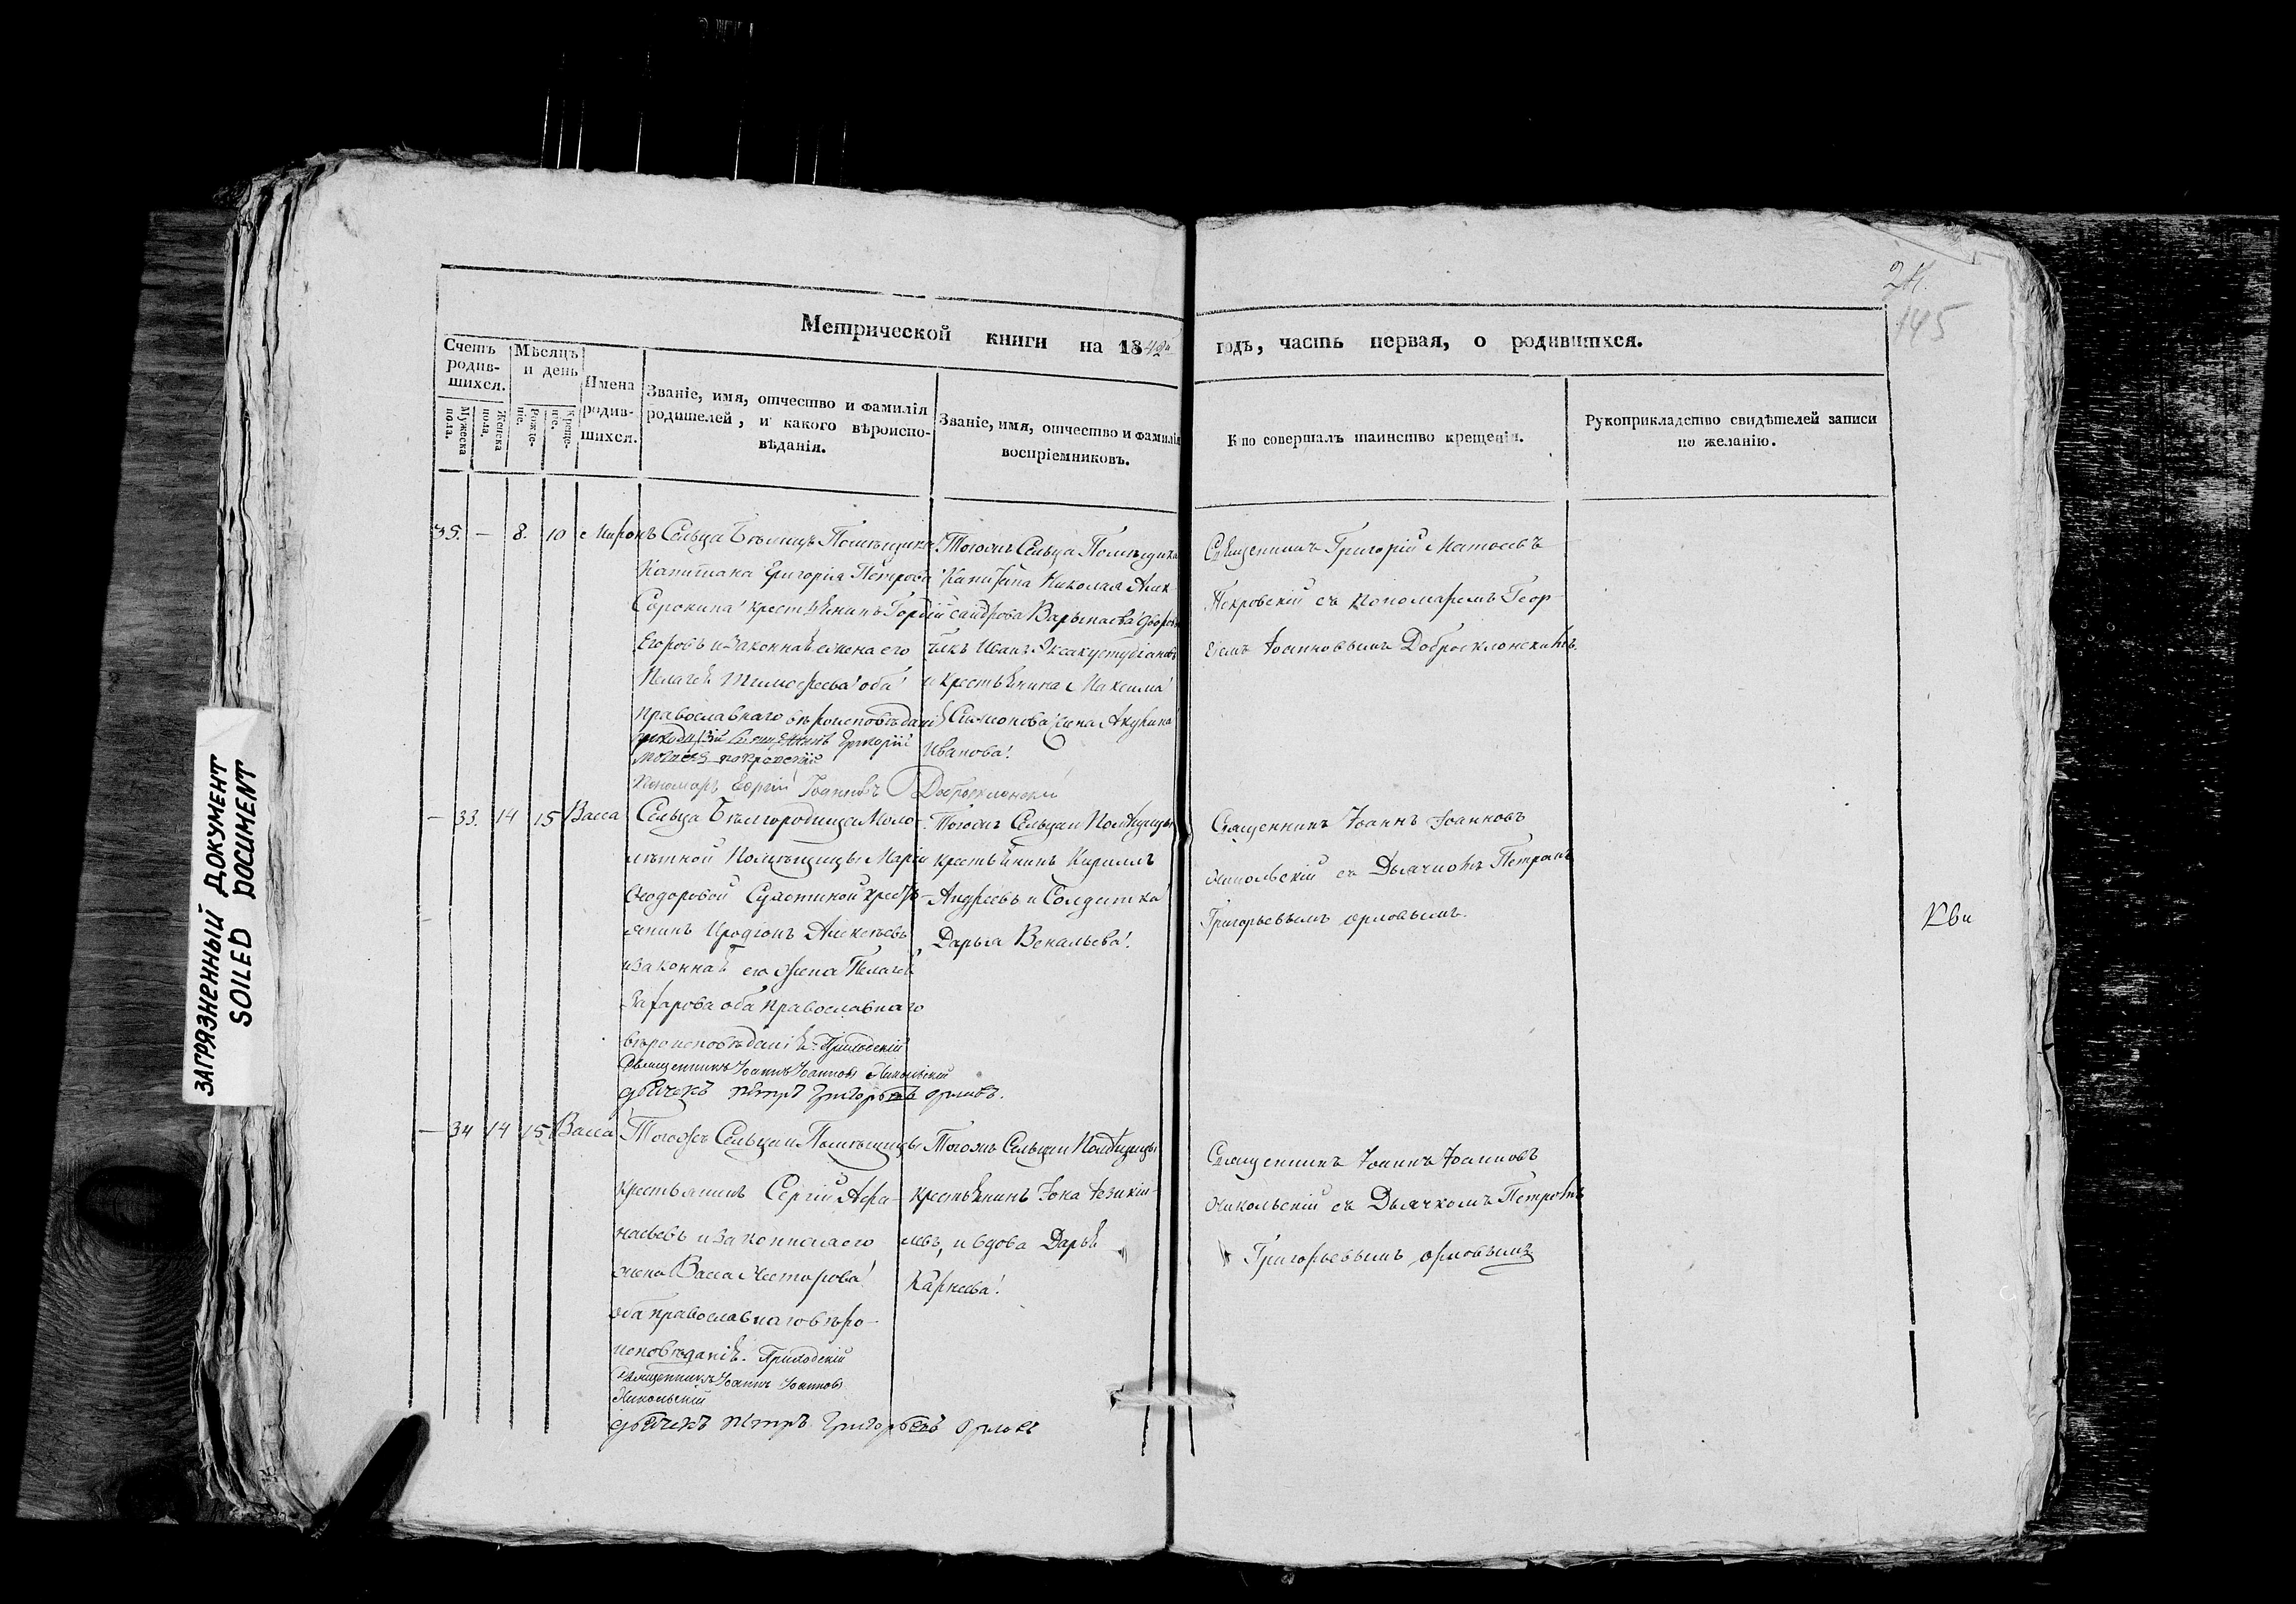 24.
145
Метрической книги на 1842й годъ, часть первая, о родившихся.
Счетъ родив-шихся.
Мужеска пола.
Женска пола.
Мѣсяцъ и день
Рожде-ніе.
Креще-ніе.
Имена родив-шихся.
Званіе, имя, отчество и фамилія родителей, и какого вѣроиспо-вѣданія.
Званіе, имя, отчество и фамилія воспріемниковъ.
Кто совершалъ таинство крещенія.
Рукоприкладство свидѣтелей записи по желанію.
35. — 8. 10 Миронъ
Сельца Помѣщика
Капитана Григорія Петрова
Сорокина крестьянинъ Гордій
Егоровъ и законная жена его
Пелагея Тимофеева оба
православнаго вѣроисповѣданія
приходскій священникъ Григорій
Матвеевъ покровскій
Пономарь Георгій Іоанновъ Доброклонскій
Тогожъ Сельца Помѣщика
Капитана Николая Алек-
сандрова дворов
Иванъ
и крестьянина Максима
Симонова жена Акулина
Иванова.
Священникъ Григорій Матвеевъ
Покровскій съ пономаремъ Геор-
гіемъ Іоанновымъ
— 33. 14 15 Васса
Сельца Бѣлгородища Мало-
лѣтной Помѣщицы Маріи
Ѳеодоровой Сухотиной кресть-
янинъ Иродіонъ Алексѣевъ
и законная его жена Пелагея
Захарова оба православнаго
вѣроисповѣданія. Приходскій
Священникъ Іоаннъ Іоанновъ Никольскій
дьячекъ петръ григорьевъ орловъ.
Тогожъ Сельца и Помѣщицы
крестьянинъ Кириллъ
Андреевъ и Солдатка
Дарья
Священникъ Іоаннъ Іоанновъ
Никольскій съ Дьячкомъ Петромъ
Григорьевымъ орловымъ.
— 34 14 15 Васса
Тогожъ Сельца и Помѣщицы
крестьянинъ Сергій Афа-
насьевъ и законная его
жена Васса Несторова
оба православнаго вѣро-
исповѣданія. Приходскій
Священникъ Іоаннъ Іоанновъ
Никольскій
дьячекъ петръ григорьевъ орловъ
Тогожъ Сельца и Помѣщицы
крестьянинъ Іона Іезекіи-
левъ, и вдова Дарья
Карнеева.
Священникъ Іоаннъ Іоанновъ
Никольскій съ Дьячкомъ Петромъ
Григорьевымъ орловымъ
ЗАГРЯЗНЕННЫЙ ДОКУМЕНТ
SOILED DOCUMENT